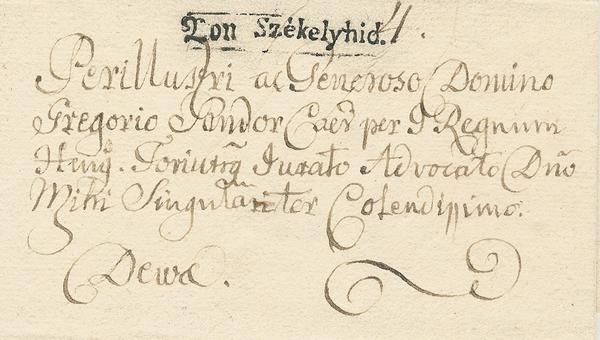 Von Székelyhid. 4.
Perillustri ac Generoso Domino
Gregorio Sandor Caes per I Regnum
Hung. Toriusq Jurato Advocato Dno
Mihi Singulariter Colendissimo.
Dewæ.